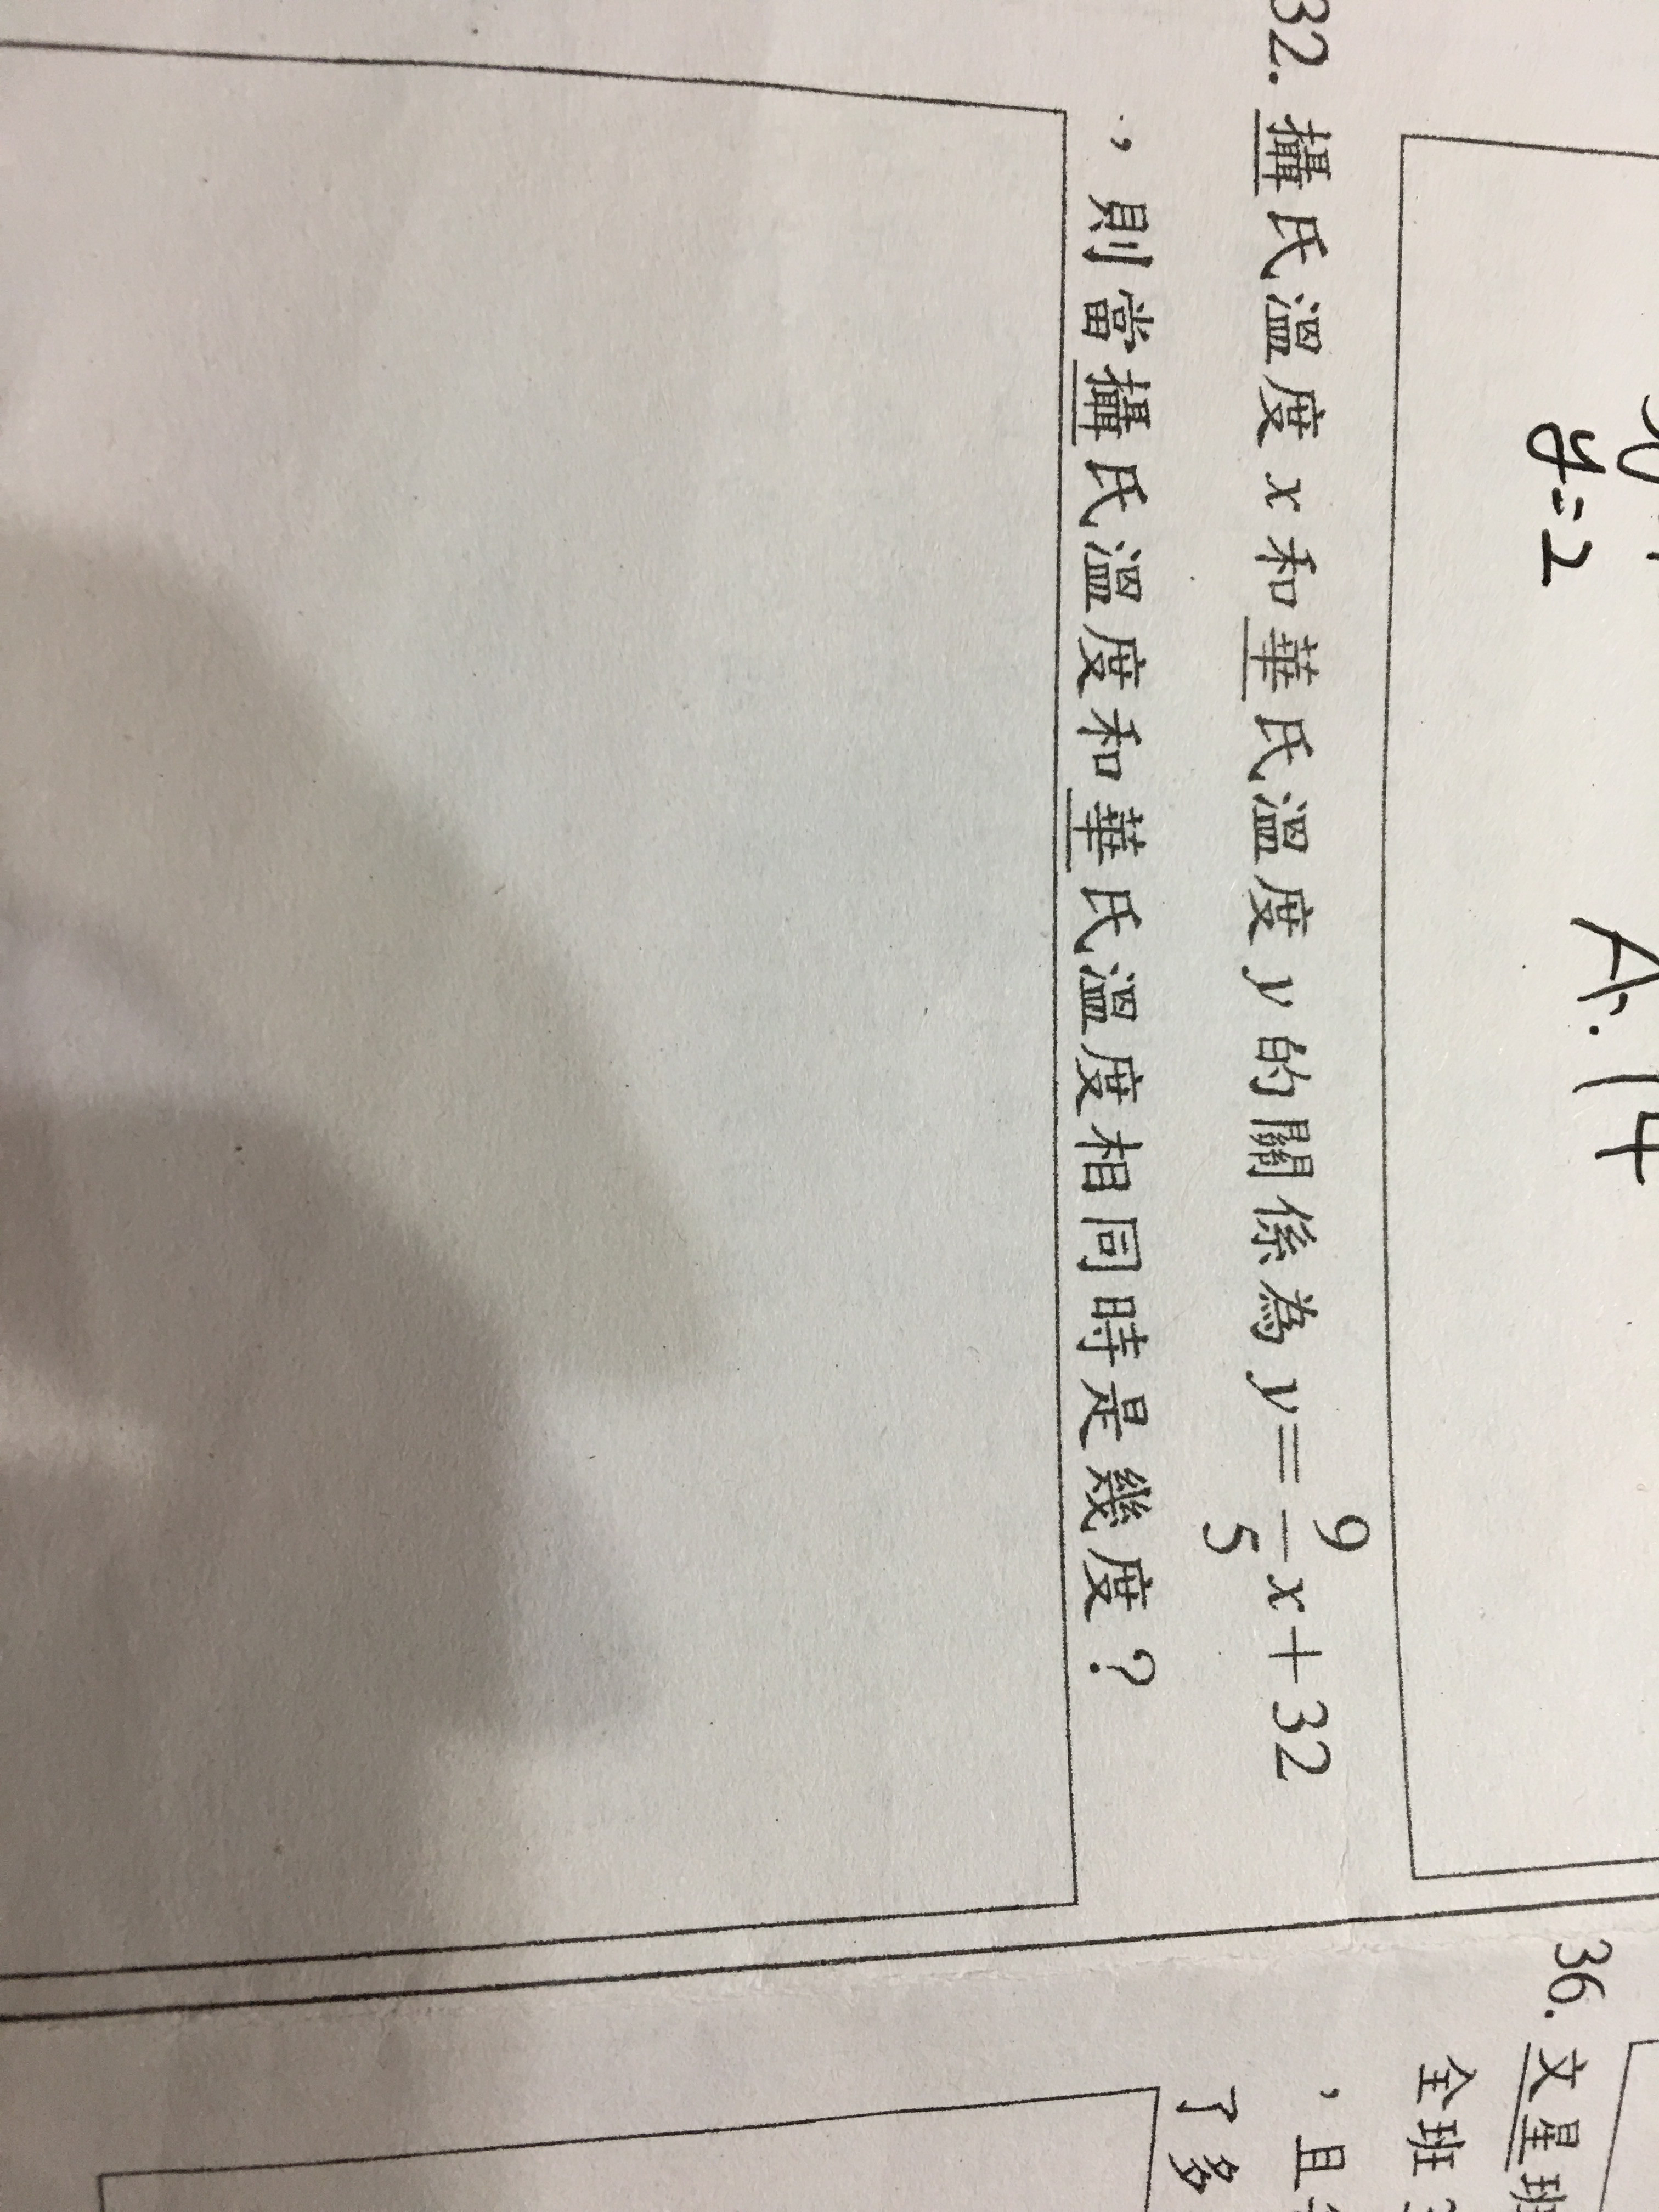 y=2
A: 14
32. 攝氏溫度 x 和華氏溫度 y 的關係為 y=9/5x+32
,則當攝氏溫度和華氏溫度相同時是幾度?
36. 文星班
全班
,且
了多